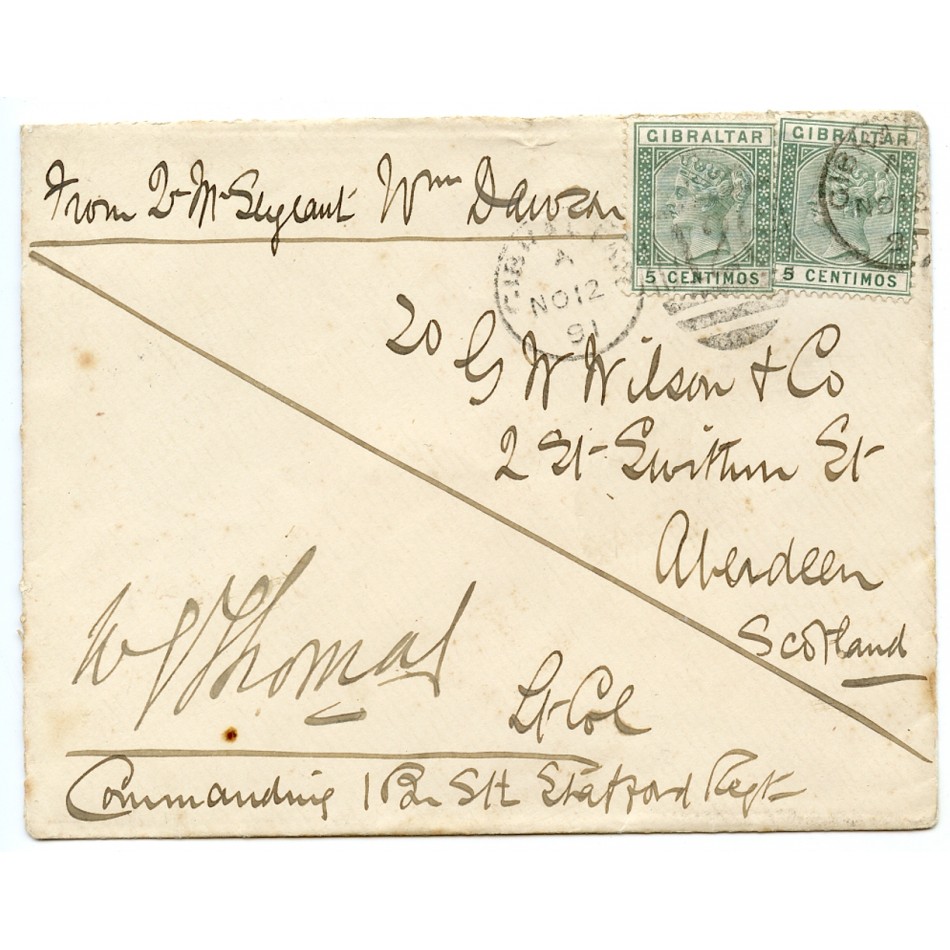 GIBRALTAR GIBRALTAR
5 CENTIMOS 5 CENTIMOS
From Qr Mr Sergeant Wm Dawson
GIBRALTAR
A
NO 12
91
20 G W Wilson & Co
2 St Swithin St
Aberdeen
Scotland
W Thomas
Lt Col
Commanding 1 Bn Sth Stafford Regt